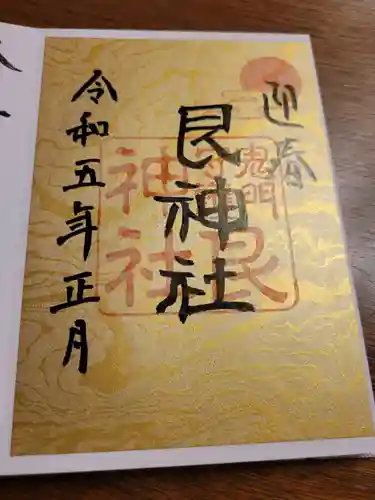 迎春
艮神社
令和五年正月
鬼門
艮
神社